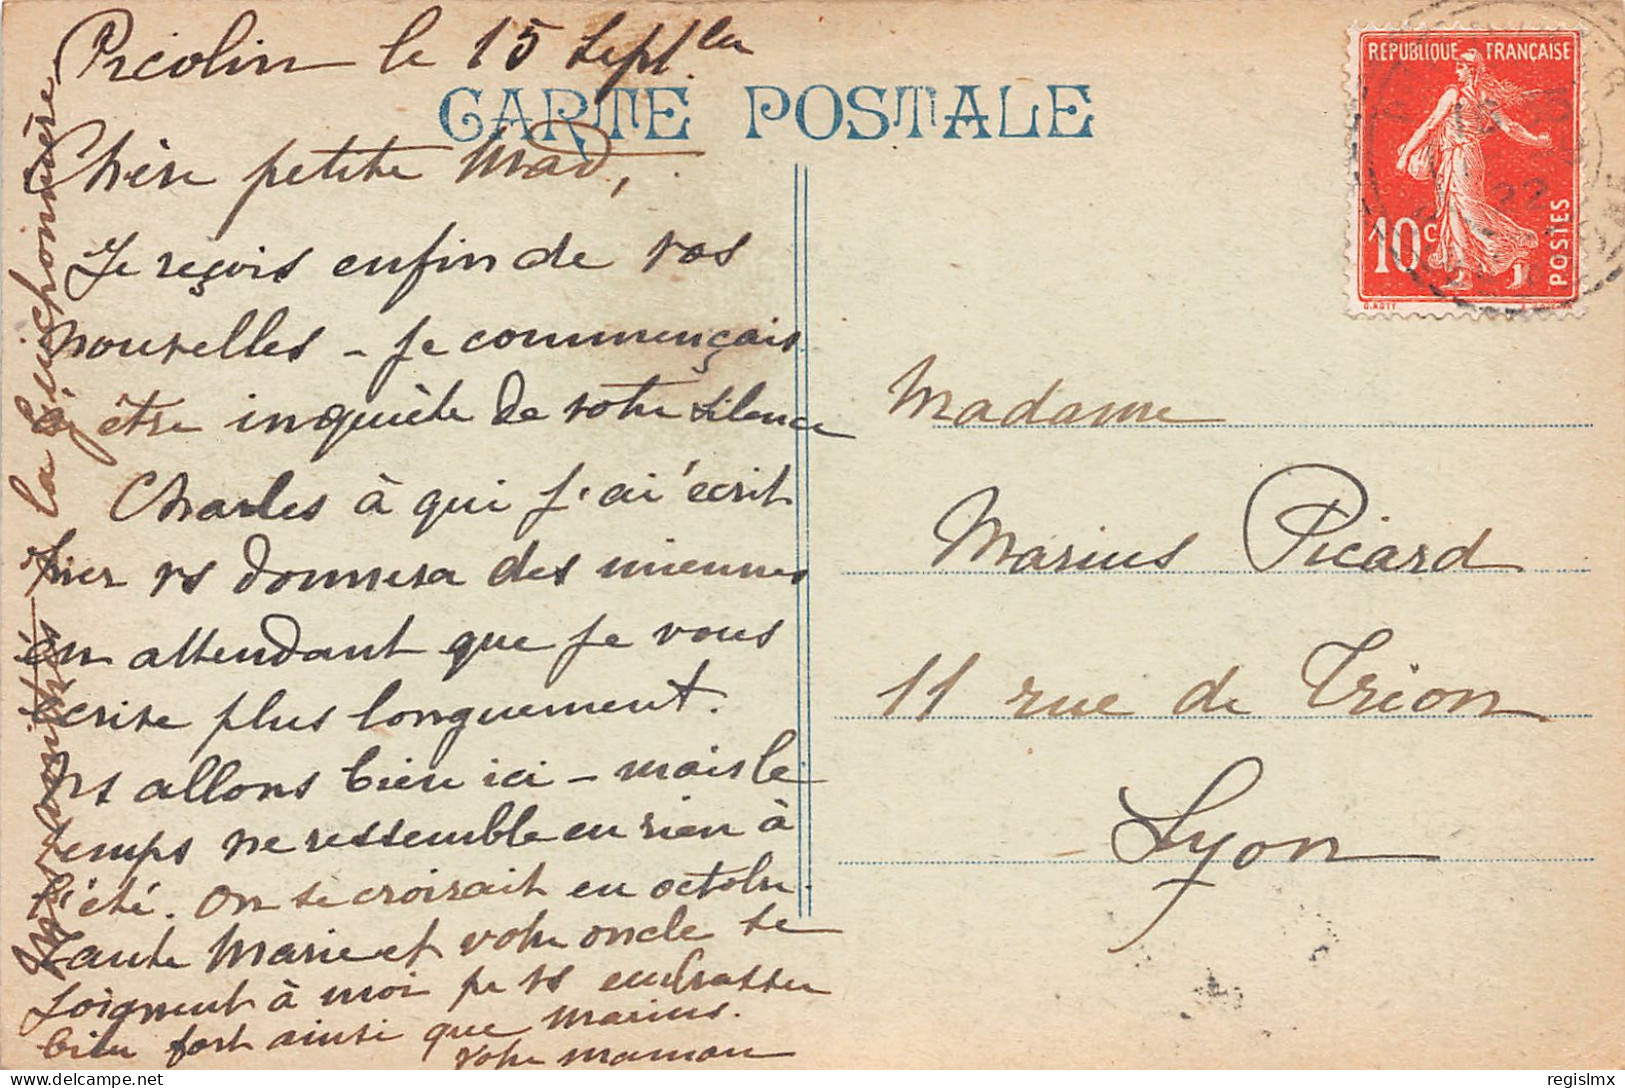 Picolin le 15 Septbre
CARTE POSTALE
Chère petite Mad,
Je reçois enfin de vos
nouvelles – je commençais
à être inquiète de votre silence
Charles à qui j'ai écrit
hier vs donnera des miennes
en attendant que je vous
écrive plus longuement.
Ns allons bien ici – mais le
temps ne ressemble en rien à
l'été. On se croirait en octobre.
Tante Marie et votre oncle se
joignent à moi pr vs embrasser
bien fort ainsi que Marius.
votre maman
la Guichonnière
REPUBLIQUE FRANÇAISE
10c
POSTES
Madame
Marius Picard
11 rue de Trion
Lyon
regislmx